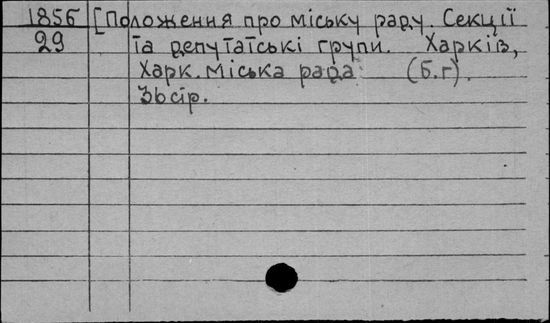 1856 [Положення про міську раду. Секції
29 та депутатські групи. Харків,
Харк. міська рада. (б.г).
36 стр.